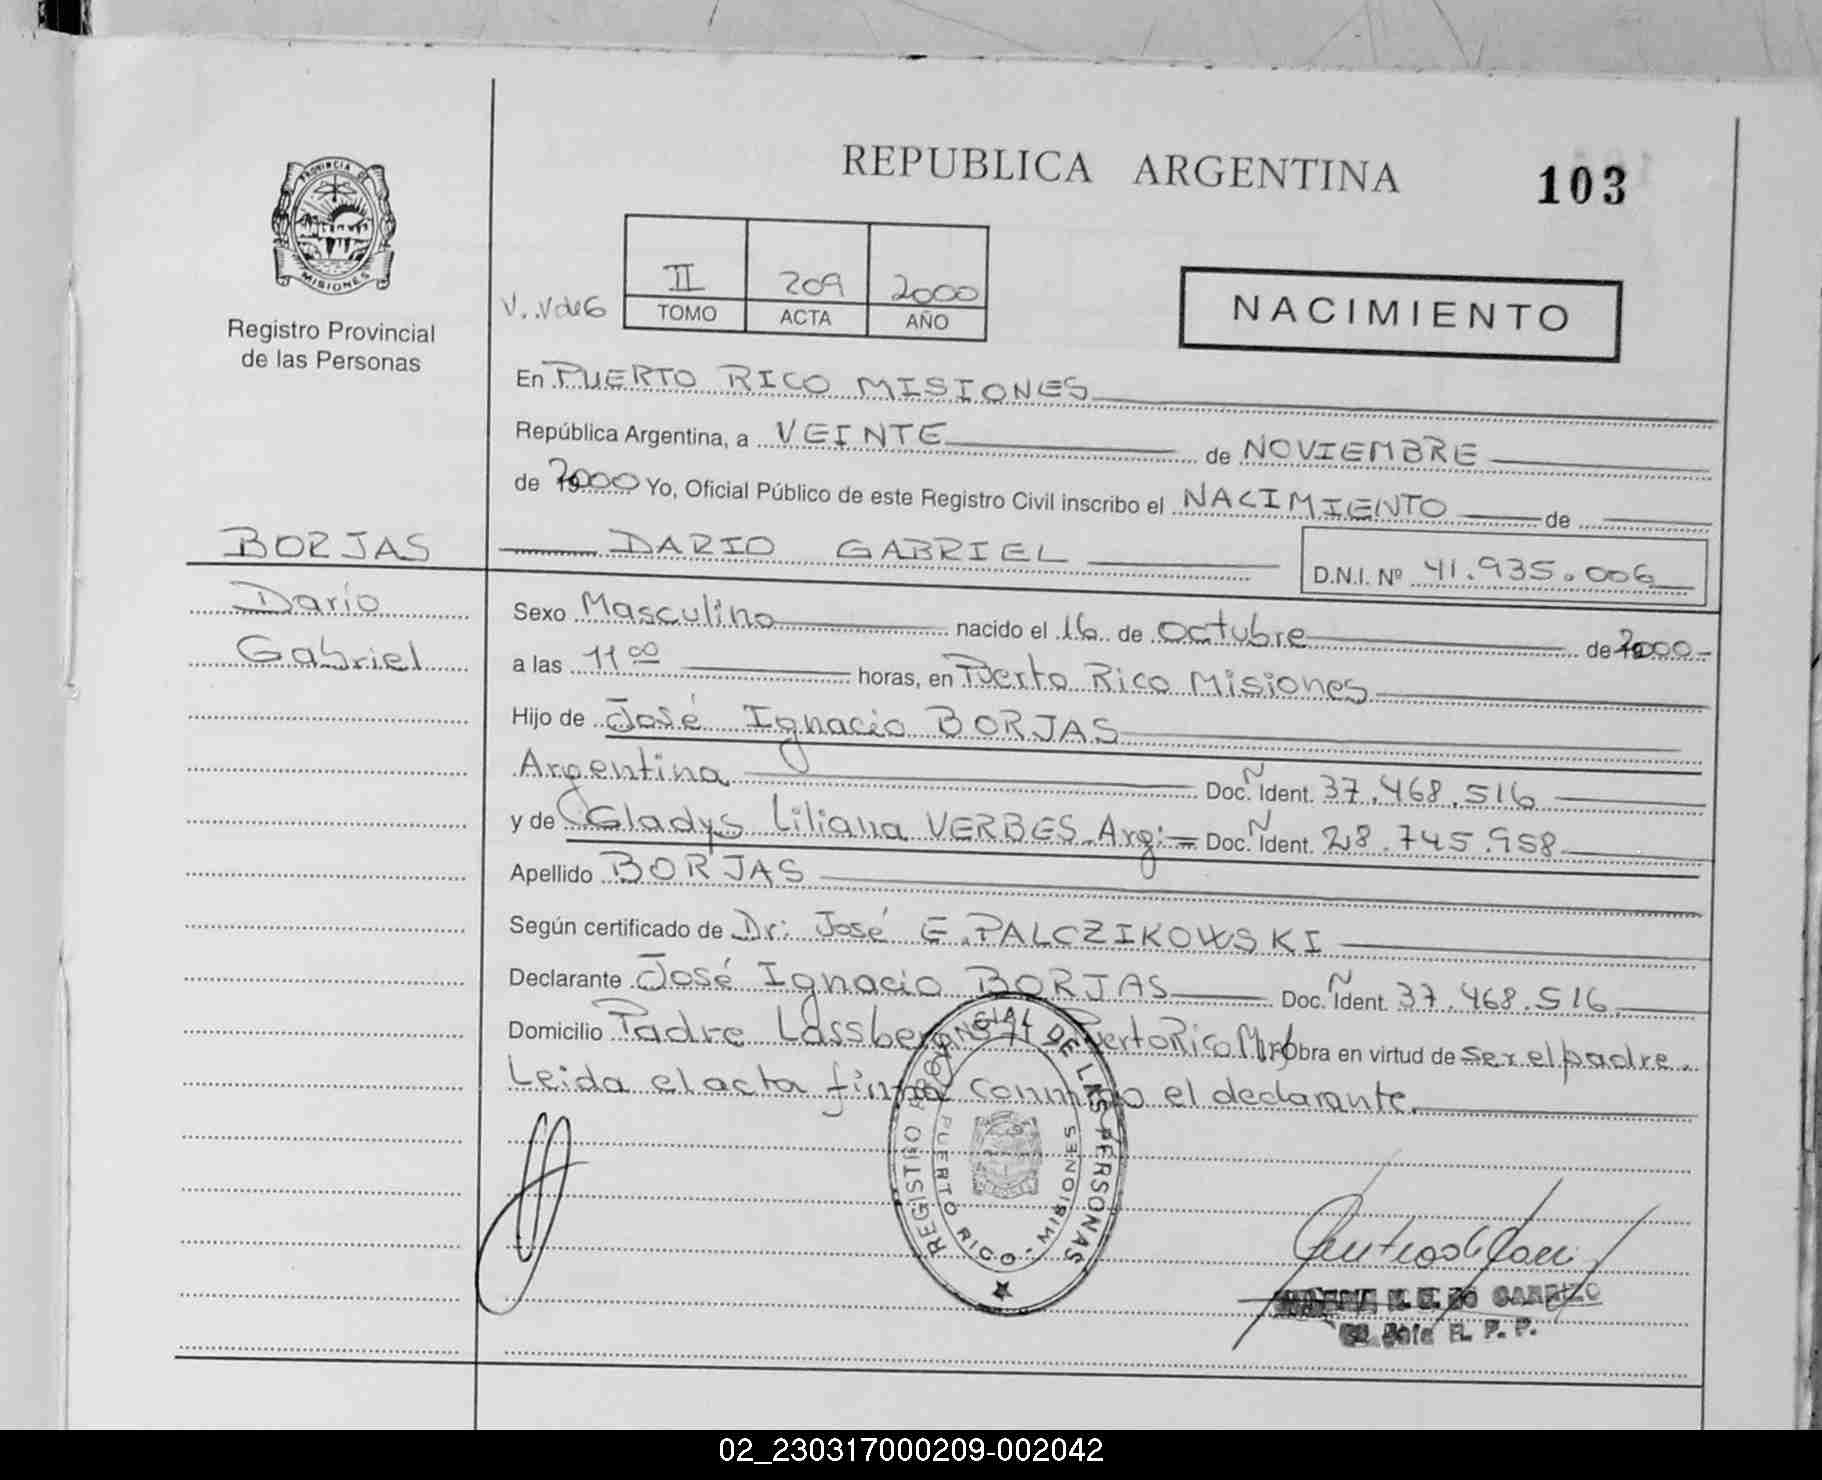 REPUBLICA ARGENTINA
103
PROVINCIA DE
MISIONES
Registro Provincial
de las Personas
V..V de G
II 209 2000
TOMO ACTA AÑO
NACIMIENTO
En PUERTO RICO MISIONES
República Argentina, a VEINTE de NOVIEMBRE
de 2000 Yo, Oficial Público de este Registro Civil inscribo el NACIMIENTO de
BORJAS
DARIO GABRIEL
D.N.I. Nº 41.935.006
Darío
Gabriel
Sexo Masculino nacido el 16 de octubre de 2000
a las 11 00 horas, en Puerto Rico Misiones
Hijo de José Ignacio BORJAS
Argentina Doc. Ñ Ident. 37.468.516
y de Gladys Liliana VERBES Arg: = Doc. Ñ Ident. 28.745.958
Apellido BORJAS
Según certificado de Dr: José E. PALCZIKOWSKI
Declarante José Ignacio BORJAS Doc. Ñ Ident. 37.468.516
Domicilio Padre Lassberg Puerto Rico obra en virtud de ser el padre.
Leida el acta firma conmigo el declarante.
REGISTRO PROVINCIAL DE LAS PERSONAS
PUERTO RICO - MISIONES
CARRIZO
R. P. P.
02_230317000209-002042